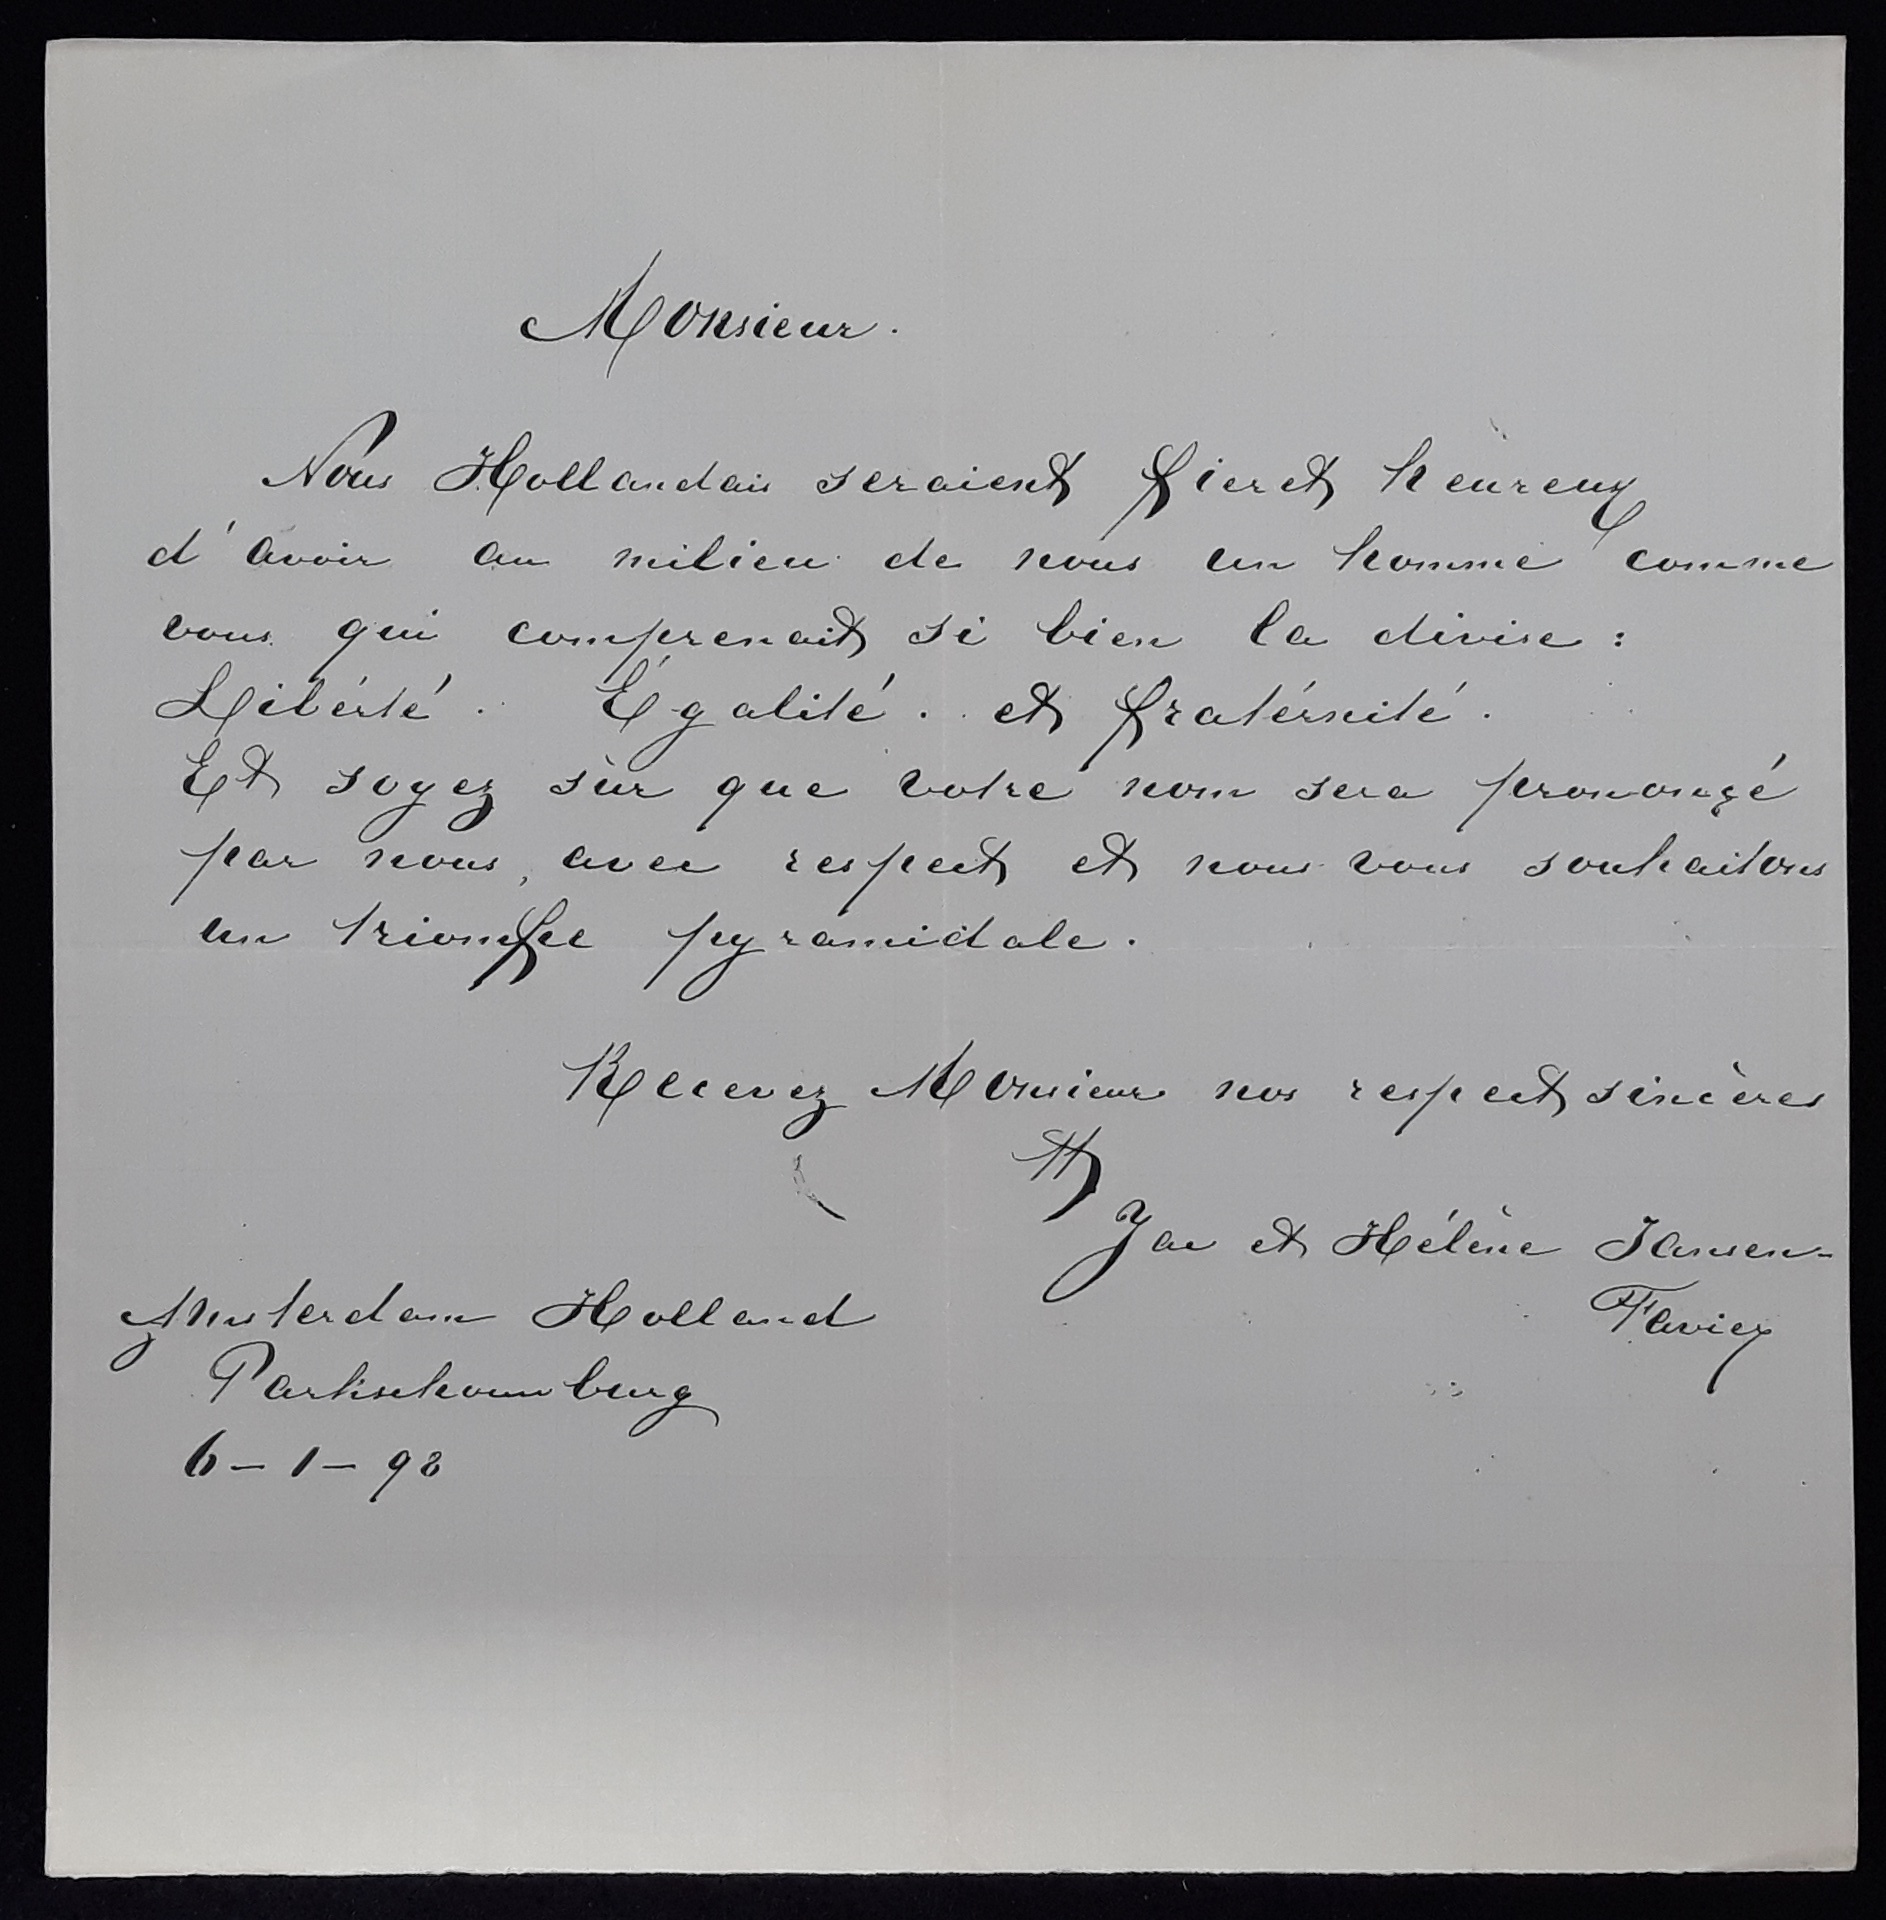 Monsieur.
Nous Hollandais seraient fier et heùreux
d'avoir au milieu de nous un homme comme
vous qui comprenait si bien la divise :
Libérté. Égalité. et fratérnité.
Et soyez sùr que votre nom sera prononçé
par nous, avec respect et nous vous souhaitons
un triomfee pyramidale.
Recevez Monsieur nos respect sincères
Jac et Hélène Jansen-
Faviez
Amsterdam Holland
Parkschouwburg
6 - 1 - 98